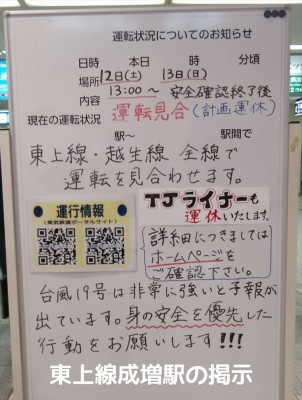 運転状況についてのお知らせ
日時 本日 時 分頃
場所 12日(土) 13日(日)
内容 13:00～ 安全確認終了後
現在の運転状況 運転見合(計画運休)
駅～ 駅間で
東上線・越生線 全線で
運転を見合わせます。
運行情報
(東武鉄道ポータルサイト)
TJライナーも
運休いたします。
詳細につきましては
ホームページを
ご確認下さい。
台風19号は非常に強いと予報が
出ています。身の安全を優先した
行動をお願いします!!!
東上線成増駅の掲示